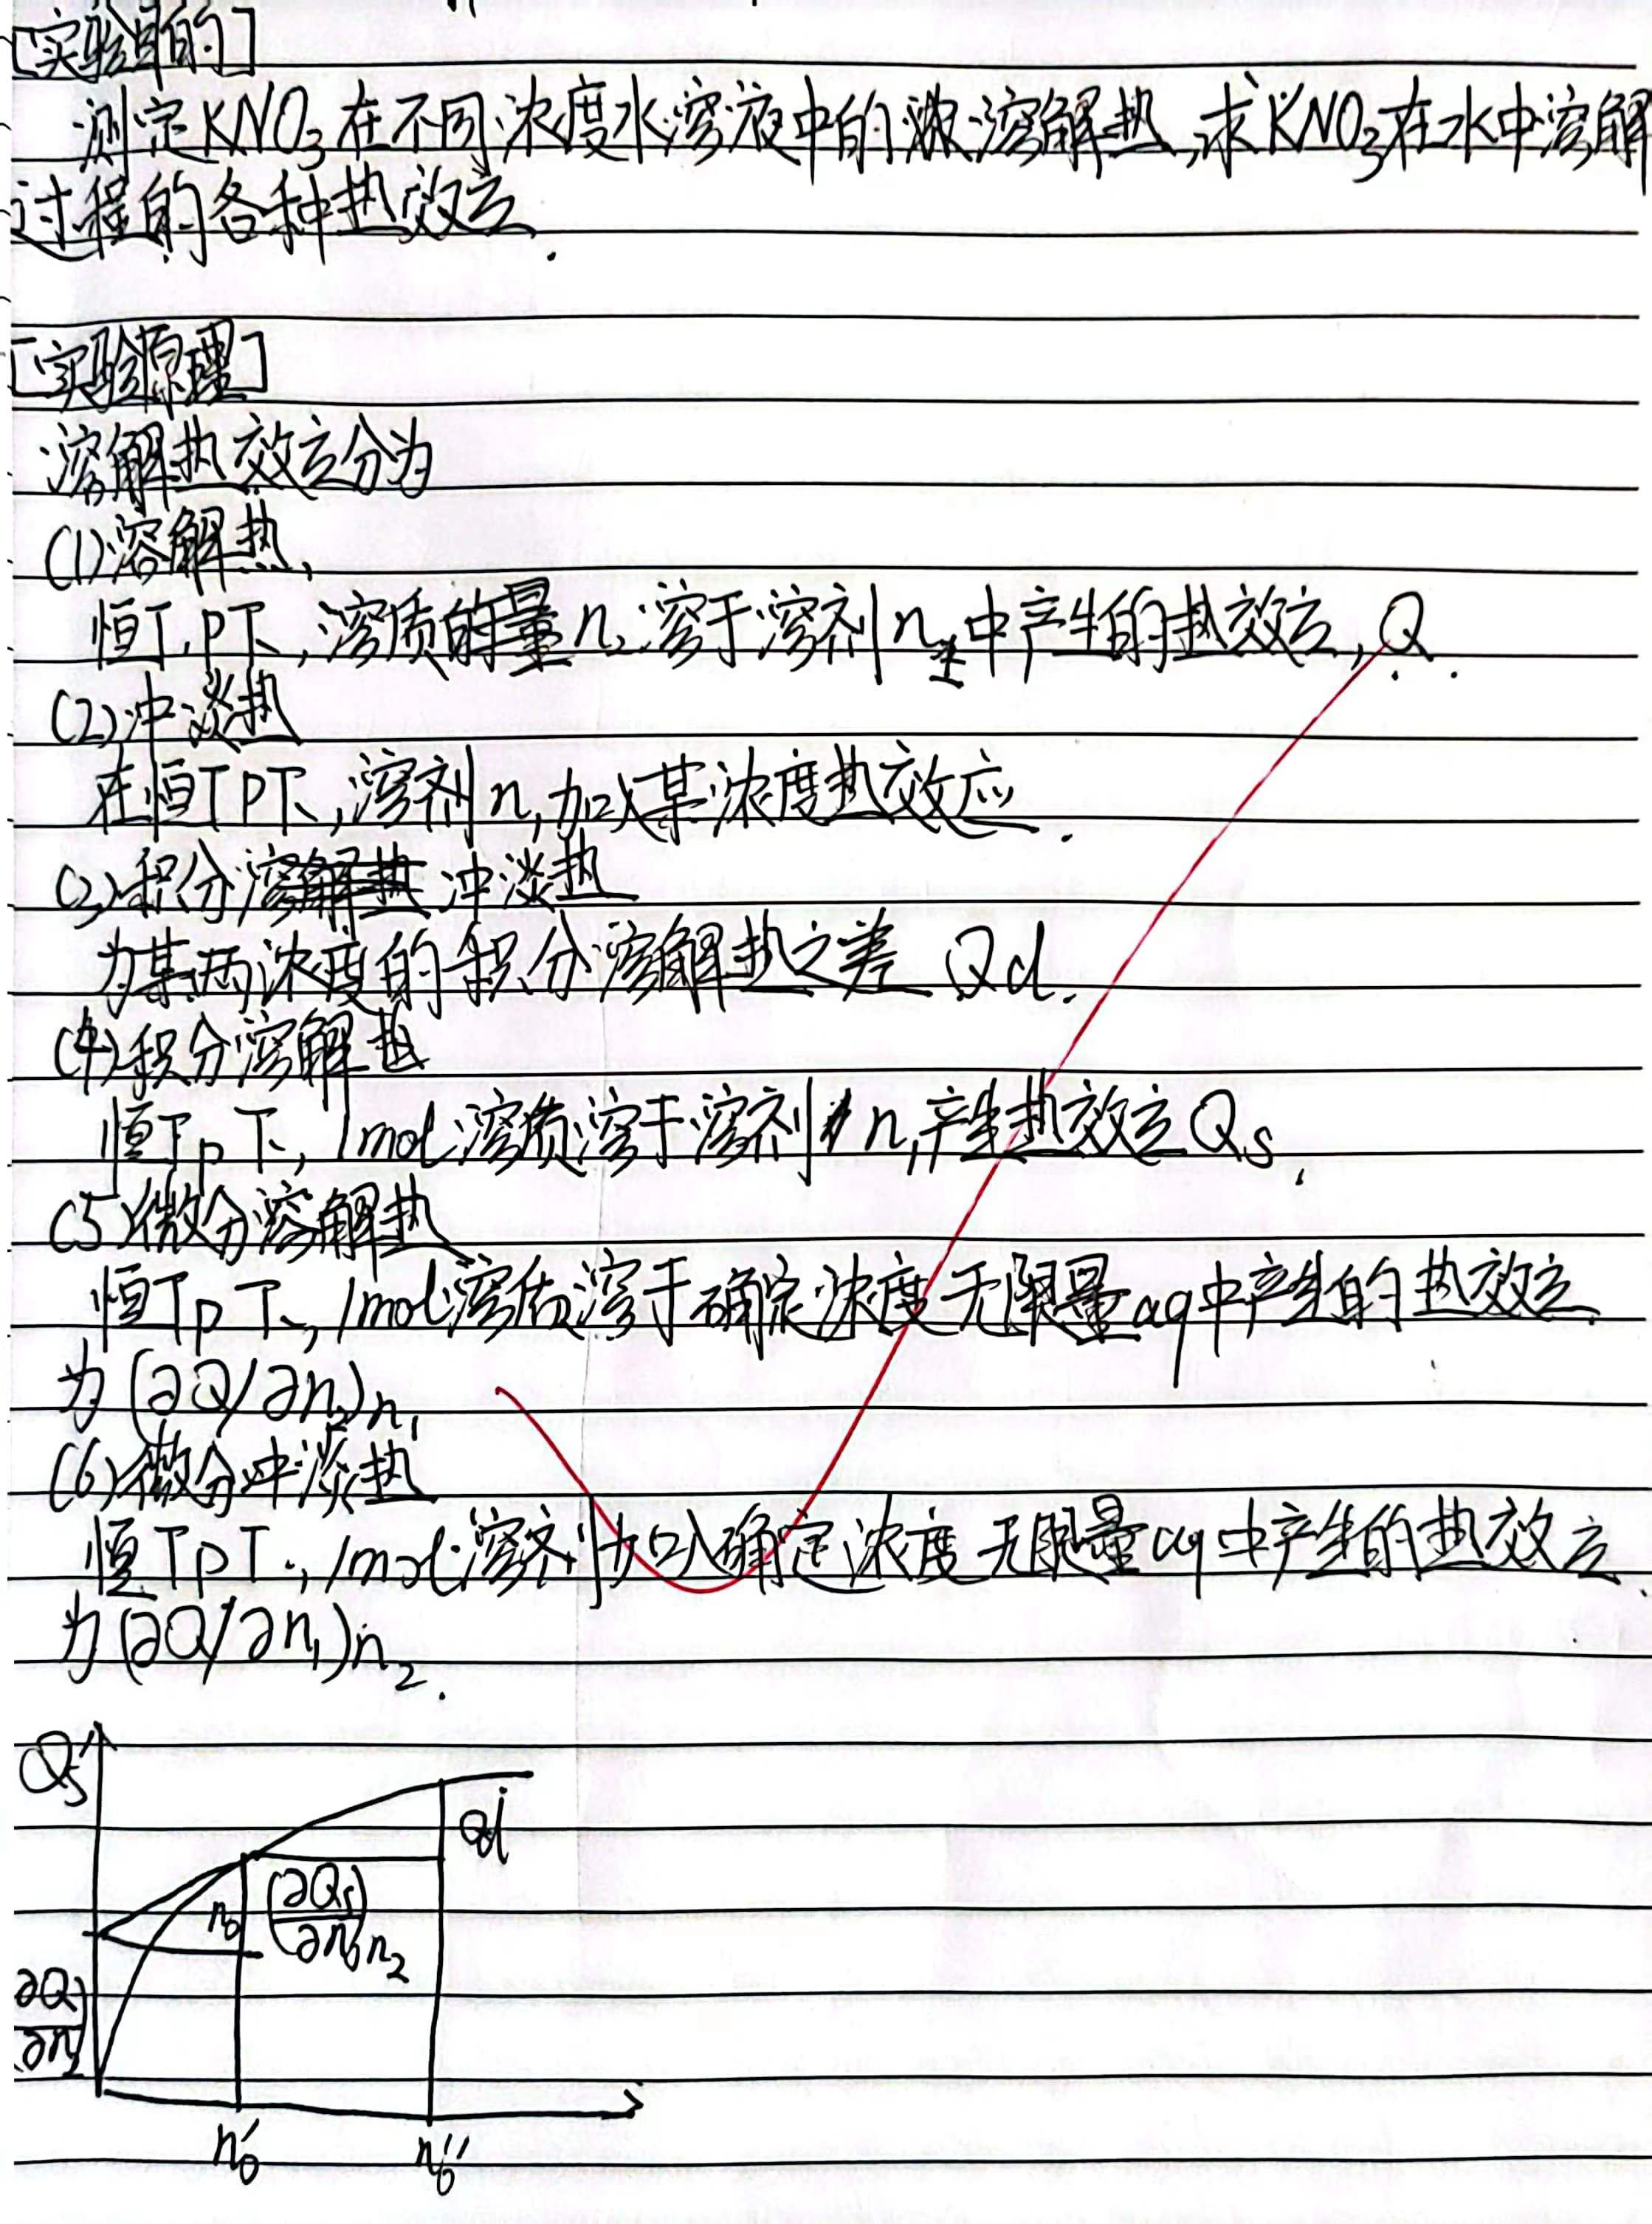 [实验目的]
测定KNO₃在不同浓度水溶液中的溶解热,求KNO₃在水中溶解
过程的各种热效应.
[实验原理]
溶解热效应分为
(1)溶解热
恒T.P下,溶质的量n₂溶于溶剂n₁中产生的热效应,Q.
(2)冲淡热
在恒TP下,溶剂n₁加入某浓度热效应.
(3)积分冲淡热
为某两浓度的积分溶解热之差 Qd.
(4)积分溶解热
恒Tp下,1mol溶质溶于溶剂n₁产生热效应Qs.
(5)微分溶解热
恒Tp下,1mol溶质溶于确定浓度无限量aq中产生的热效应
为(∂Q/∂n₂)n₁
(6)微分冲淡热
恒Tp下,1mol溶剂加入确定浓度无限量aq中产生的热效应
为(∂Q/∂n₁)n₂.
Qs
Qd
n₀ (∂Qs/∂n₀)n₂
(∂Q/∂n₂)
n₀′ n₀″